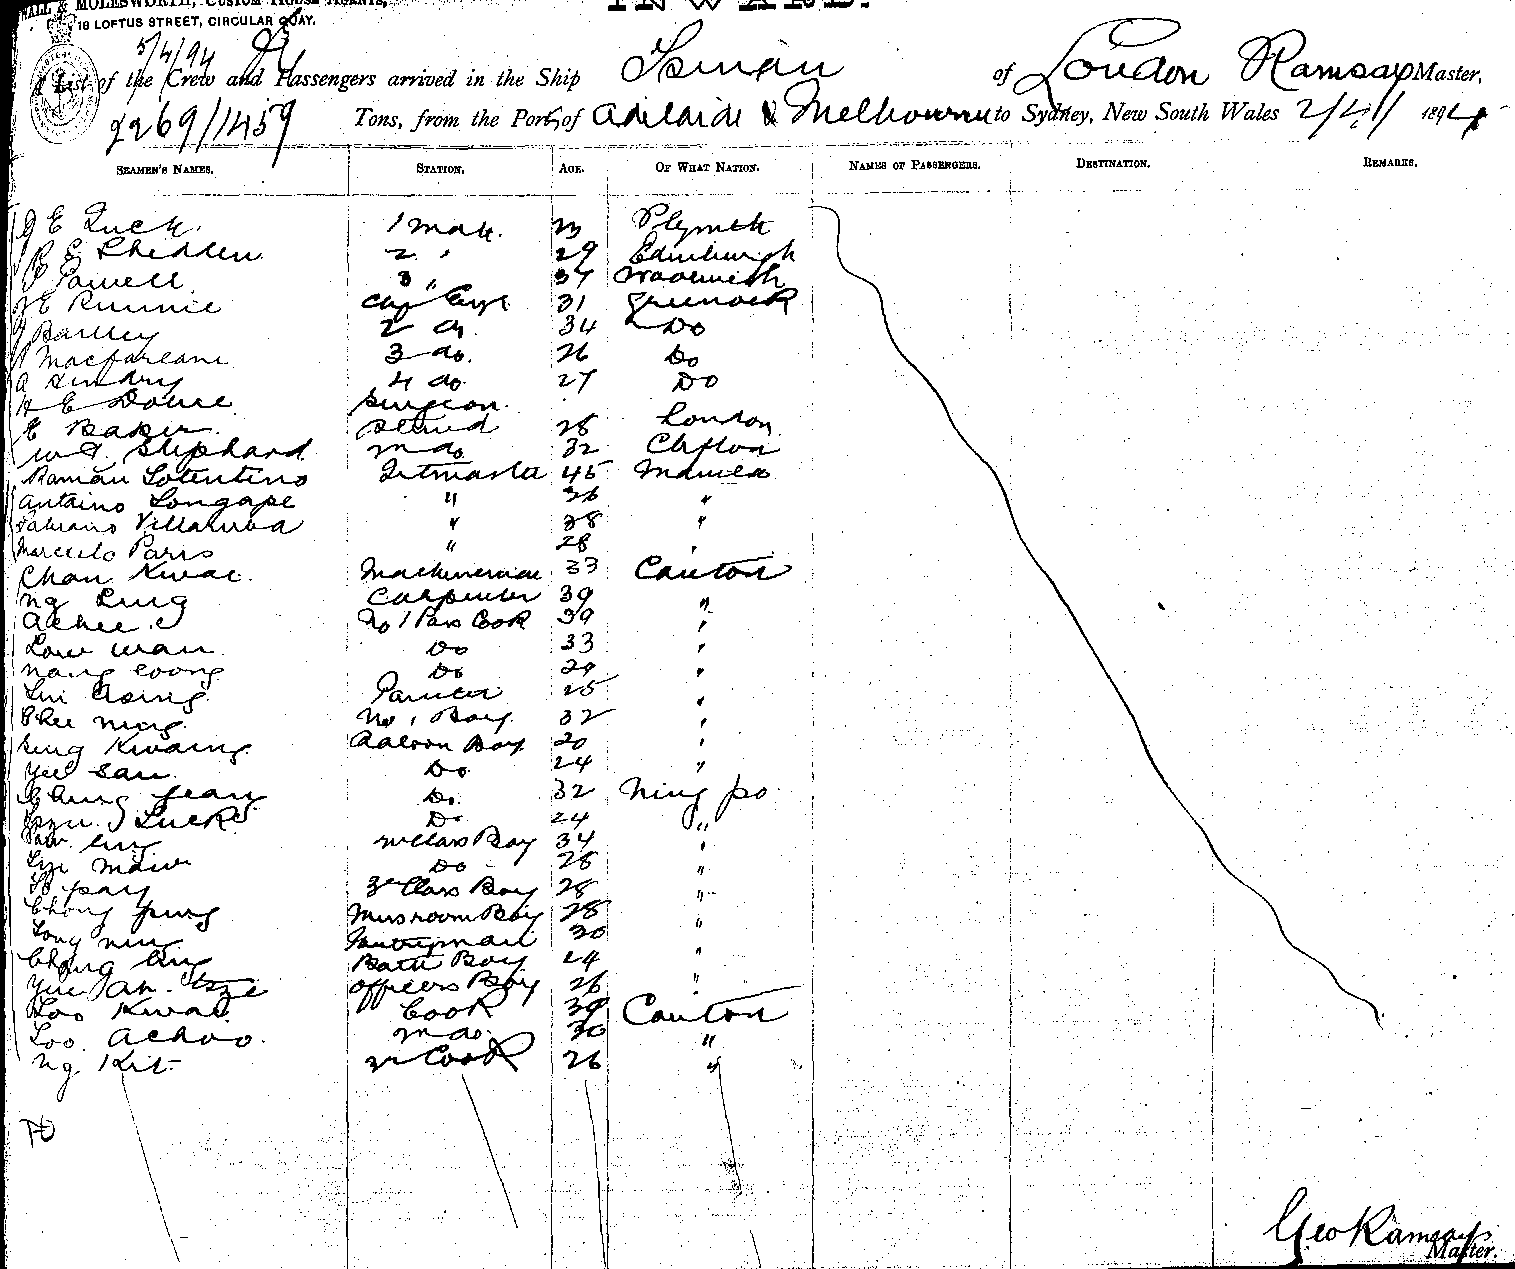 HALL & MOLESWORTH, CUSTOM HOUSE AGENTS,
18 LOFTUS STREET, CIRCULAR QUAY.
INWARD.
5/4/94
A List of the Crew and Passengers arrived in the Ship Tsinan of London Ramsay Master,
2269/1459 Tons, from the Port of Adelaide & Melbourne to Sydney, New South Wales 2/4/ 1894
SEAMEN'S NAMES. STATION. AGE. OF WHAT NATION. NAMES OF PASSENGERS. DESTINATION. REMARKS.
E Tuck. 1 mate. Plymth
2 " 29 Edinburgh
Powell 3 " 37 Woolwich
E Rennie Chf Engr 31 Greenock
Bartley 2 do. 34 Do
Macfarlane 3 do. 26 Do
A 4 do. 27 Do
H E Douse Surgeon.
E Baker Steward 28 London
W. G. Shephard 2n do 32 Clifton
Raman Totentino 45 Manila
Antaino Longape " 26 "
Villaruba " 28 "
Marcelo Paris " 28 "
Chan Kwai. 33 Canton
Ng Ling Carpenter 39 "
Achee. No 1 Pass Cook 39 "
Low Wan Do 33 "
Nang Coong Do 29 "
Lui Asing Pantra 25 "
Chee Ning No 1 Boy. 32 "
Kwaing Saloon Boy 20 "
Yee San. Do 24 "
Chung Jean Do. 32 Ning po
Luck Do 24 "
Ling 2n Class Boy 34 "
Do 28 "
pay 3r Class Boy 28 "
Chong pung Messroom Boy 28 "
Long Pantryman 30 "
Chong Ling Bath Boy 24 "
Yue Ah. Tsze Officers Boy 26 "
Loo Kwai Cook 39 Canton
Loo Achoo. 2n do. 30 "
Ng Kit 3r Cook 26 "
Geo Ramsay
Master.